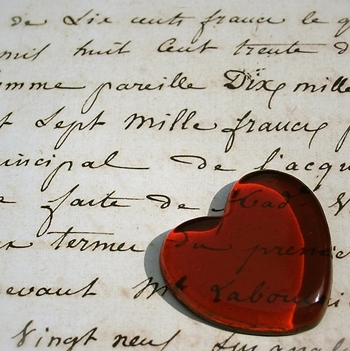 de Six cents francs le
mil huit Cent trente d
omme pareille Dix mille
t Sept mille francs
incipal de l'acqu
faite de Mad.
termes du premier
devant Me
Vingt neuf